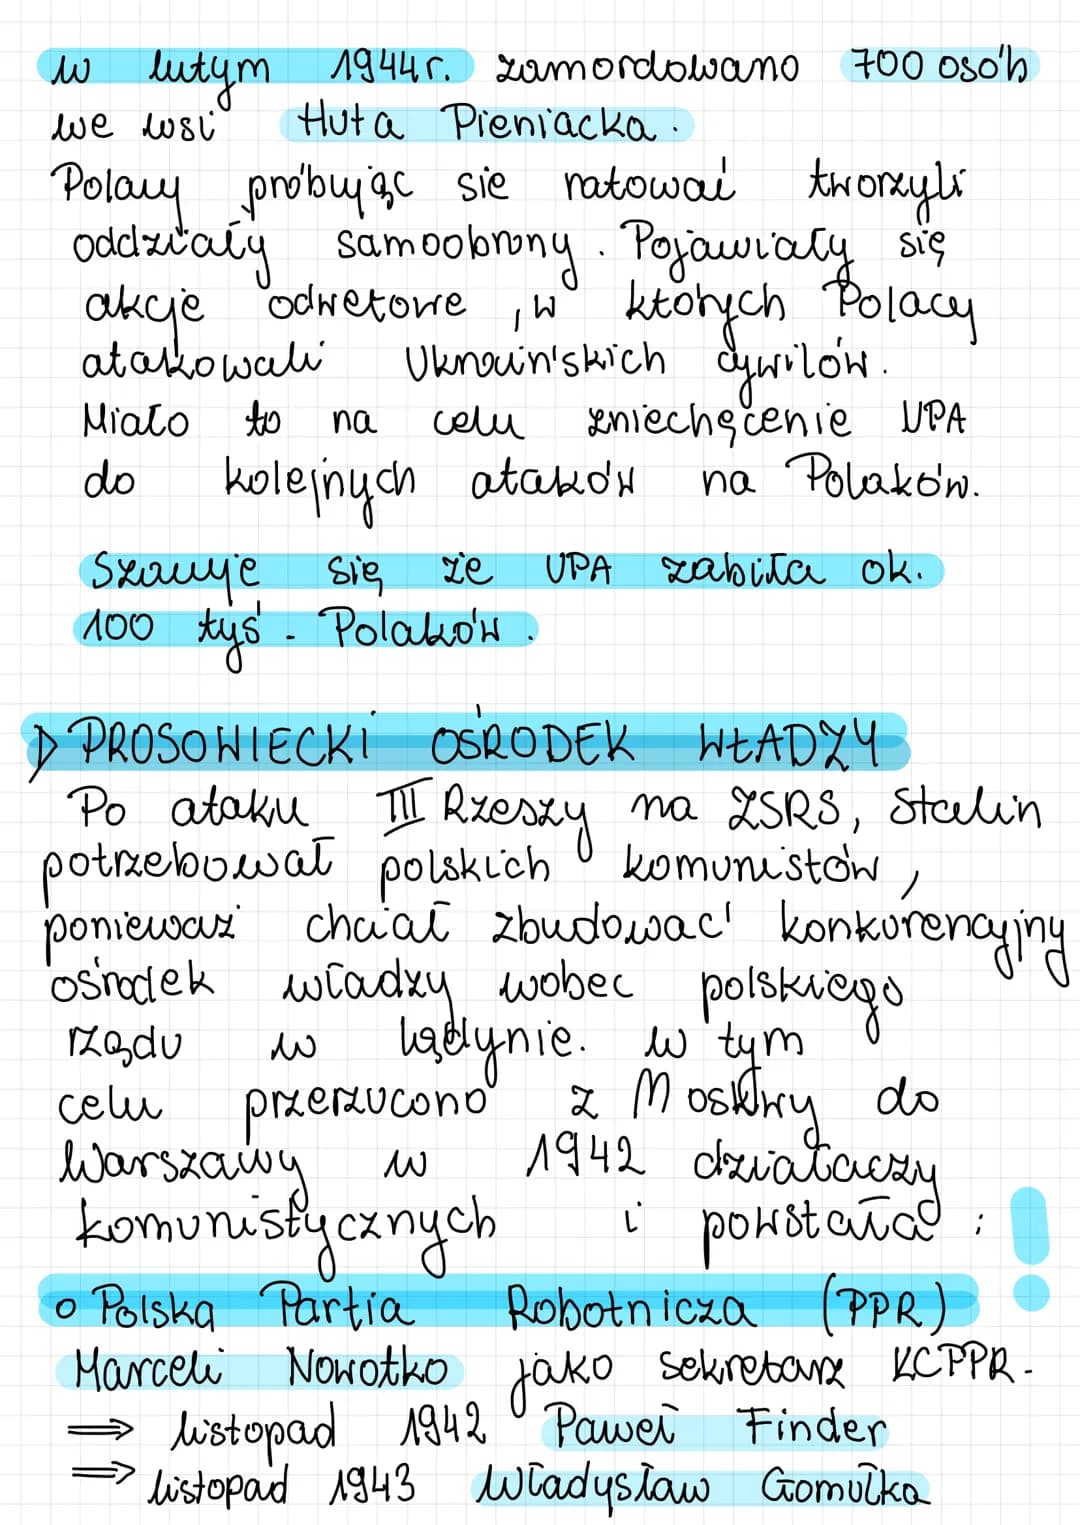 w lutym 1944r. zamordowano 700 osób
we wsi Huta Pieniacka.
Polacy próbując sie ratować tworzyli
oddziały samoobrony. Pojawiały się
akcje odwetowe, w których Polacy
atakowali Ukraińskich cywilów.
Miało to na celu zniechęcenie UPA
do kolejnych ataków na Polaków.
Szacuje się że UPA zabiła ok.
100 tyś. Polaków.
▷ PROSOWIECKI OŚRODEK WŁADZY
Po ataku III Rzeszy na ZSRS, Stalin
potrzebował polskich komunistów,
ponieważ chciał zbudować konkurencyjny
ośrodek władzy wobec polskiego
rządu w Lądynie. w tym
celu przerzucono z Moskwy do
Warszawy w 1942 działaczy
komunistycznych i powstała: !
o Polska Partia Robotnicza (PPR)
Marceli Nowotko jako sekretarz KCPPR.
⇒ listopad 1942 Paweł Finder
⇒ listopad 1943 Władysław Gomułka